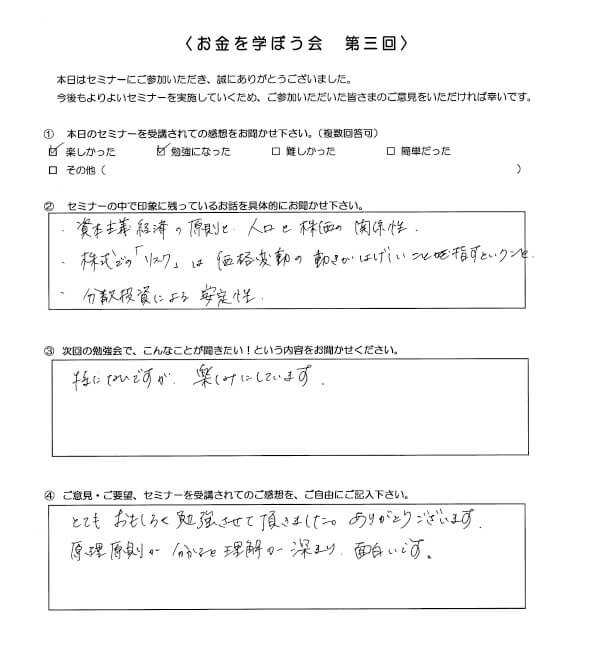 〈お金を学ぼう会　第三回〉
本日はセミナーにご参加いただき、誠にありがとうございました。
今後もよりよいセミナーを実施していくため、ご参加いただいた皆さまのご意見をいただければ幸いです。
①　本日のセミナーを受講されての感想をお聞かせ下さい。（複数回答可）
☑ 楽しかった　☑ 勉強になった　□ 難しかった　□ 簡単だった
□ その他（　）
②　セミナーの中で印象に残っているお話を具体的にお聞かせ下さい。
・資本主義経済の原則と、人口と株価の関係性.
・株式での「リスク」は価格変動の動きがはげしいことを指すということ.
・分散投資による安定性.
③　次回の勉強会で、こんなことが聞きたい！という内容をお聞かせください。
特にないですが、楽しみにしています.
④　ご意見・ご要望、セミナーを受講されてのご感想を、ご自由にご記入下さい。
とてもおもしろく勉強させて頂きました。ありがとうございます.
原理原則が分かると理解が深まり、面白いです。